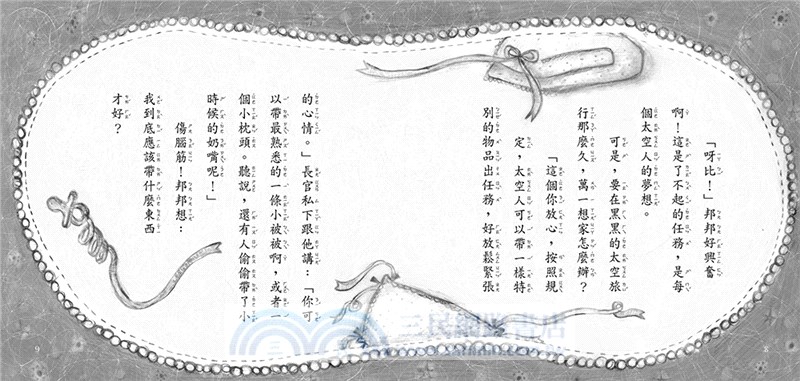 「呀比！」邦邦好興奮
啊！這是了不起的任務，是每
個太空人的夢想。
可是，要在黑黑的太空旅
行那麼久，萬一想家怎麼辦？
「這個你放心，按照規
定，太空人可以帶一樣特
別的物品出任務，好放鬆緊張
的心情。」長官私下跟他講：「你可
以帶最熟悉的一條小被被啊，或者一
個小枕頭。聽說，還有人偷偷帶了小
時候的奶嘴呢！」
傷腦筋！邦邦想：
我到底應該帶什麼東西
才好？
三民網路書店
9
8